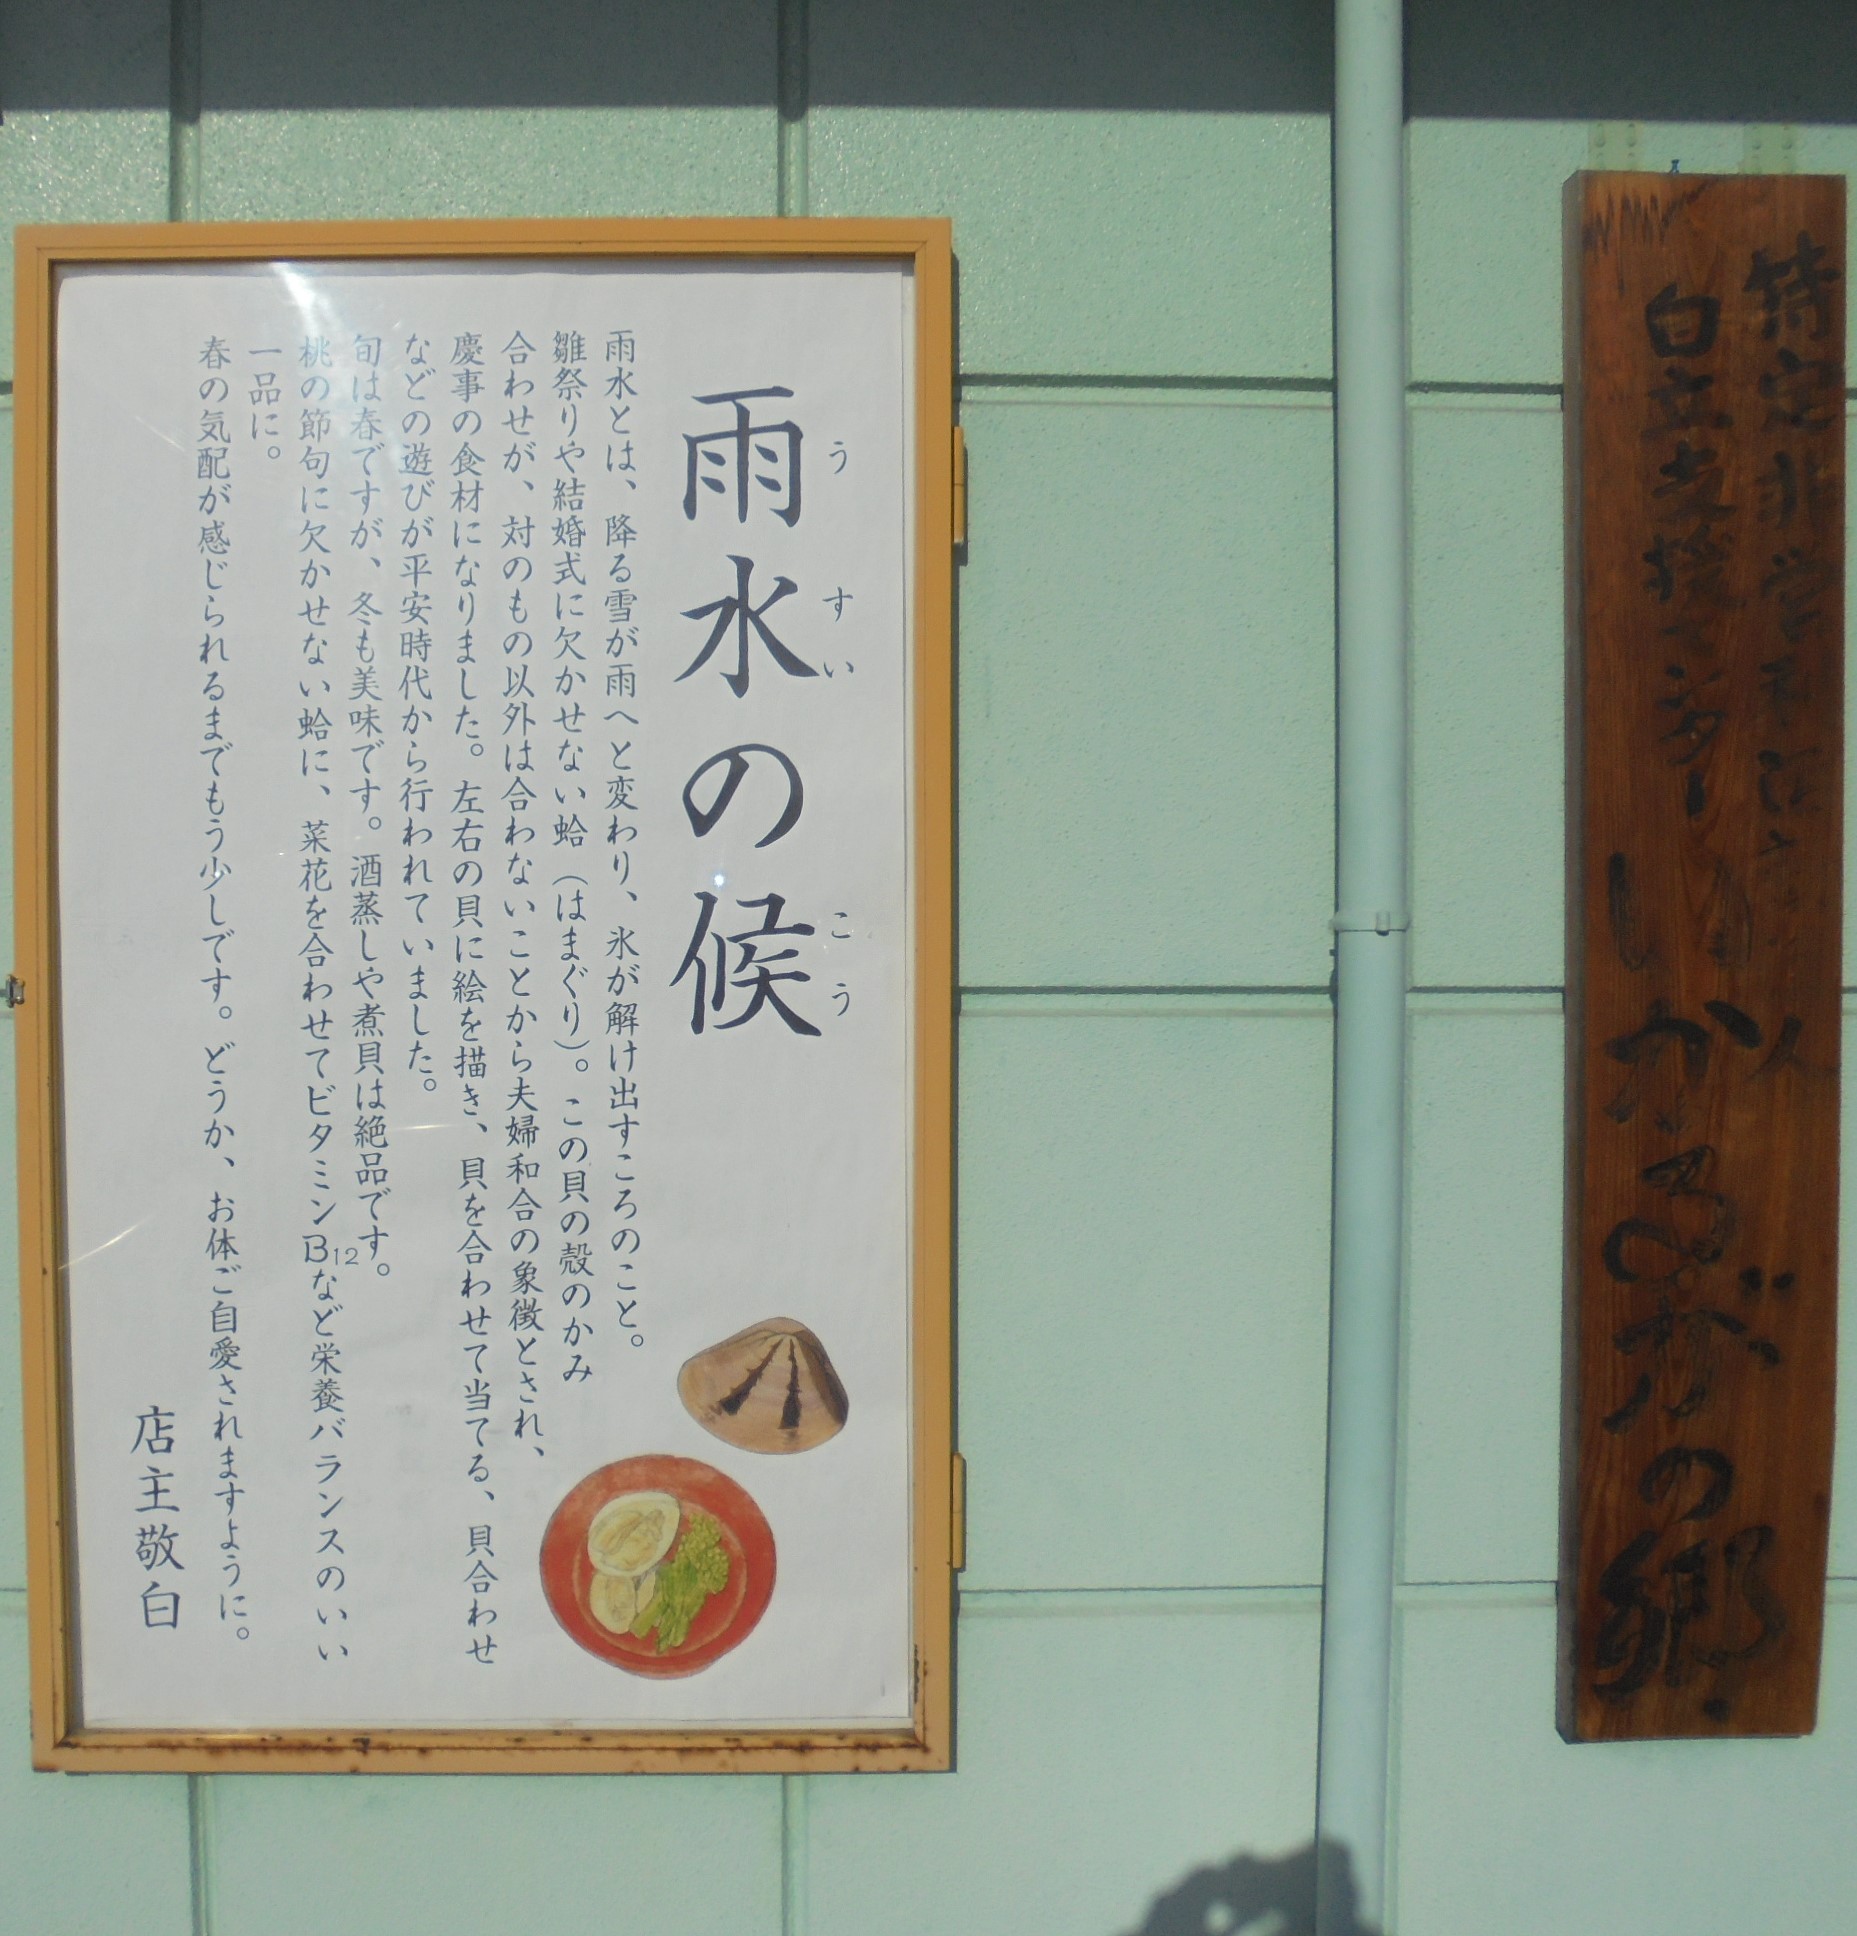 雨水の候
うすいこう
雨水とは、降る雪が雨へと変わり、氷が解け出すころのこと。
雛祭りや結婚式に欠かせない蛤（はまぐり）。この貝の殻のかみ
合わせが、対のもの以外は合わないことから夫婦和合の象徴とされ、
慶事の食材になりました。左右の貝に絵を描き、貝を合わせて当てる、貝合わせ
などの遊びが平安時代から行われていました。
旬は春ですが、冬も美味です。酒蒸しや煮貝は絶品です。
桃の節句に欠かせない蛤に、菜花を合わせてビタミンB12など栄養バランスのいい
一品に。
春の気配が感じられるまでもう少しです。どうか、お体ご自愛されますように。
店主敬白
特定非営利活動法人
自立支援センター
いかるがの郷